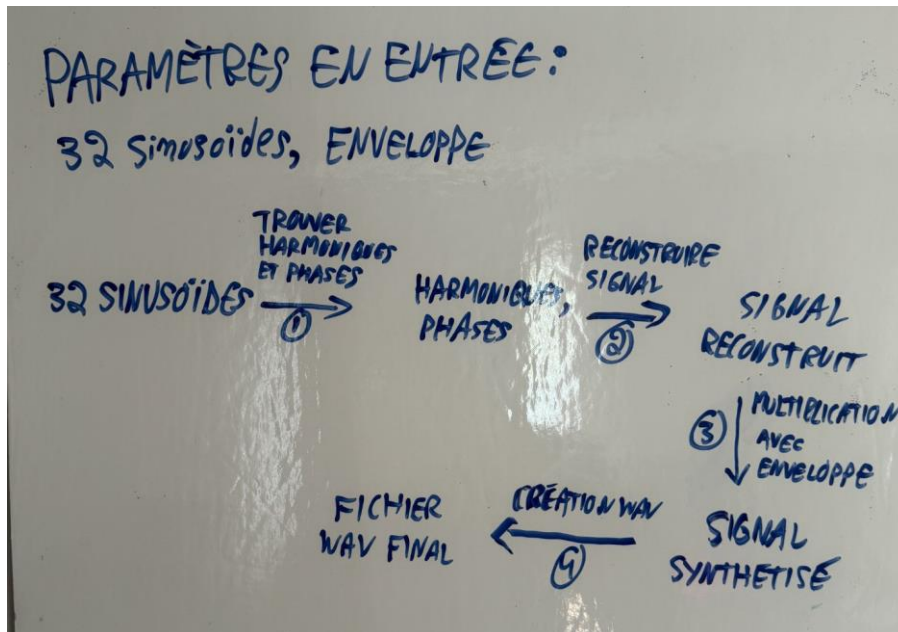 PARAMÈTRES EN ENTRÉE:
32 Sinusoïdes, ENVELOPPE
TROUVER
HARMONIQUES
ET PHASES
32 SINUSOÏDES
①
HARMONIQUES,
PHASES
RECONSTRUIRE
SIGNAL
②
SIGNAL
RECONSTRUIT
③
MULTIPLICATION
AVEC
ENVELOPPE
SIGNAL
SYNTHÉTISÉ
CRÉATION WAV
④
FICHIER
WAV FINAL